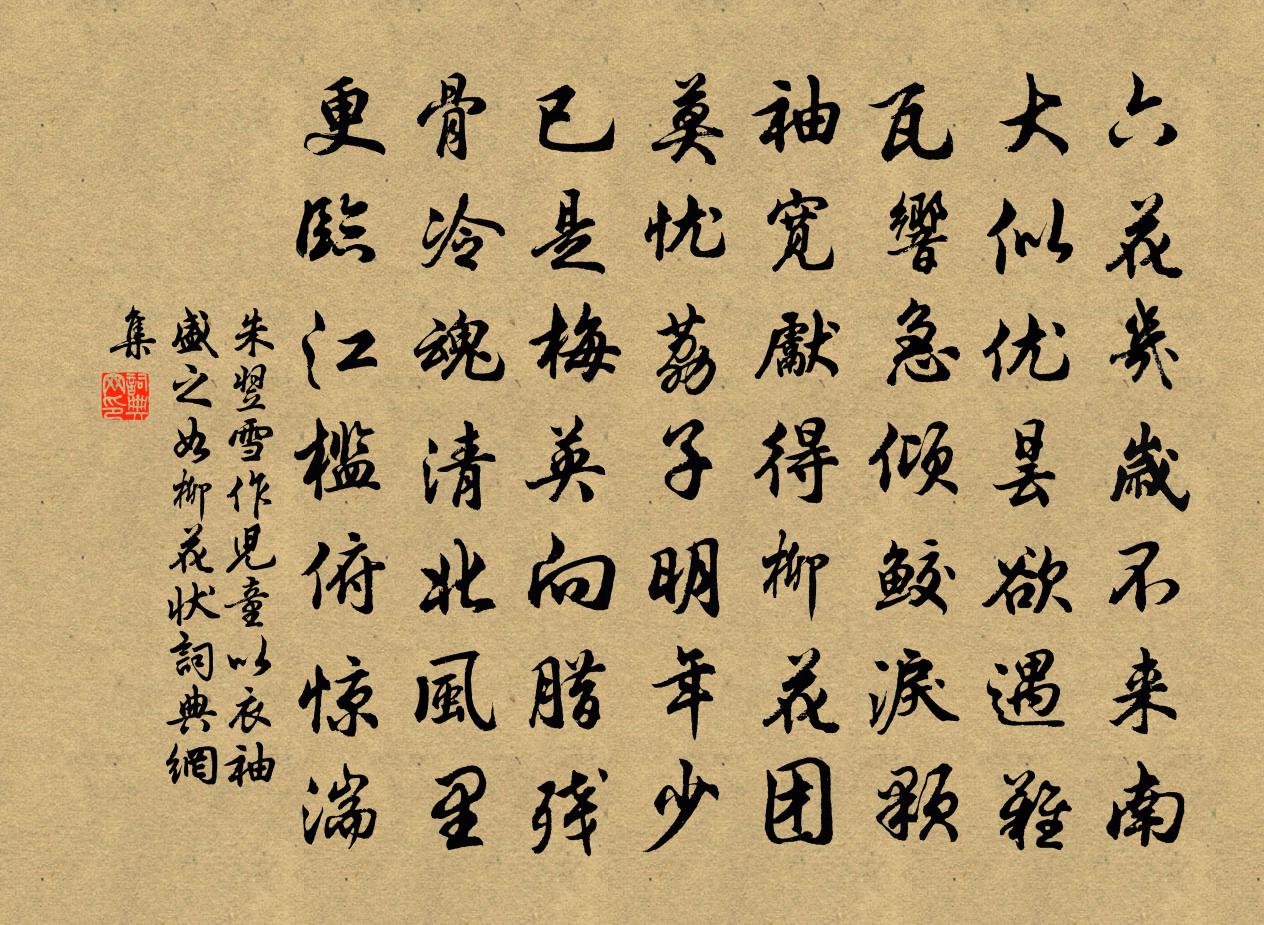 六花几岁不来南
大似优昙欲遇难
瓦響急倾鲛淚颗
袖宽獻得柳花团
莫忧荔子明年少
已是梅英向腊残
骨冷魂清北風里
更臨江檻俯惊湍
朱翌雪作児童以衣袖
盛之如柳花状詞典網
集
詞典網印